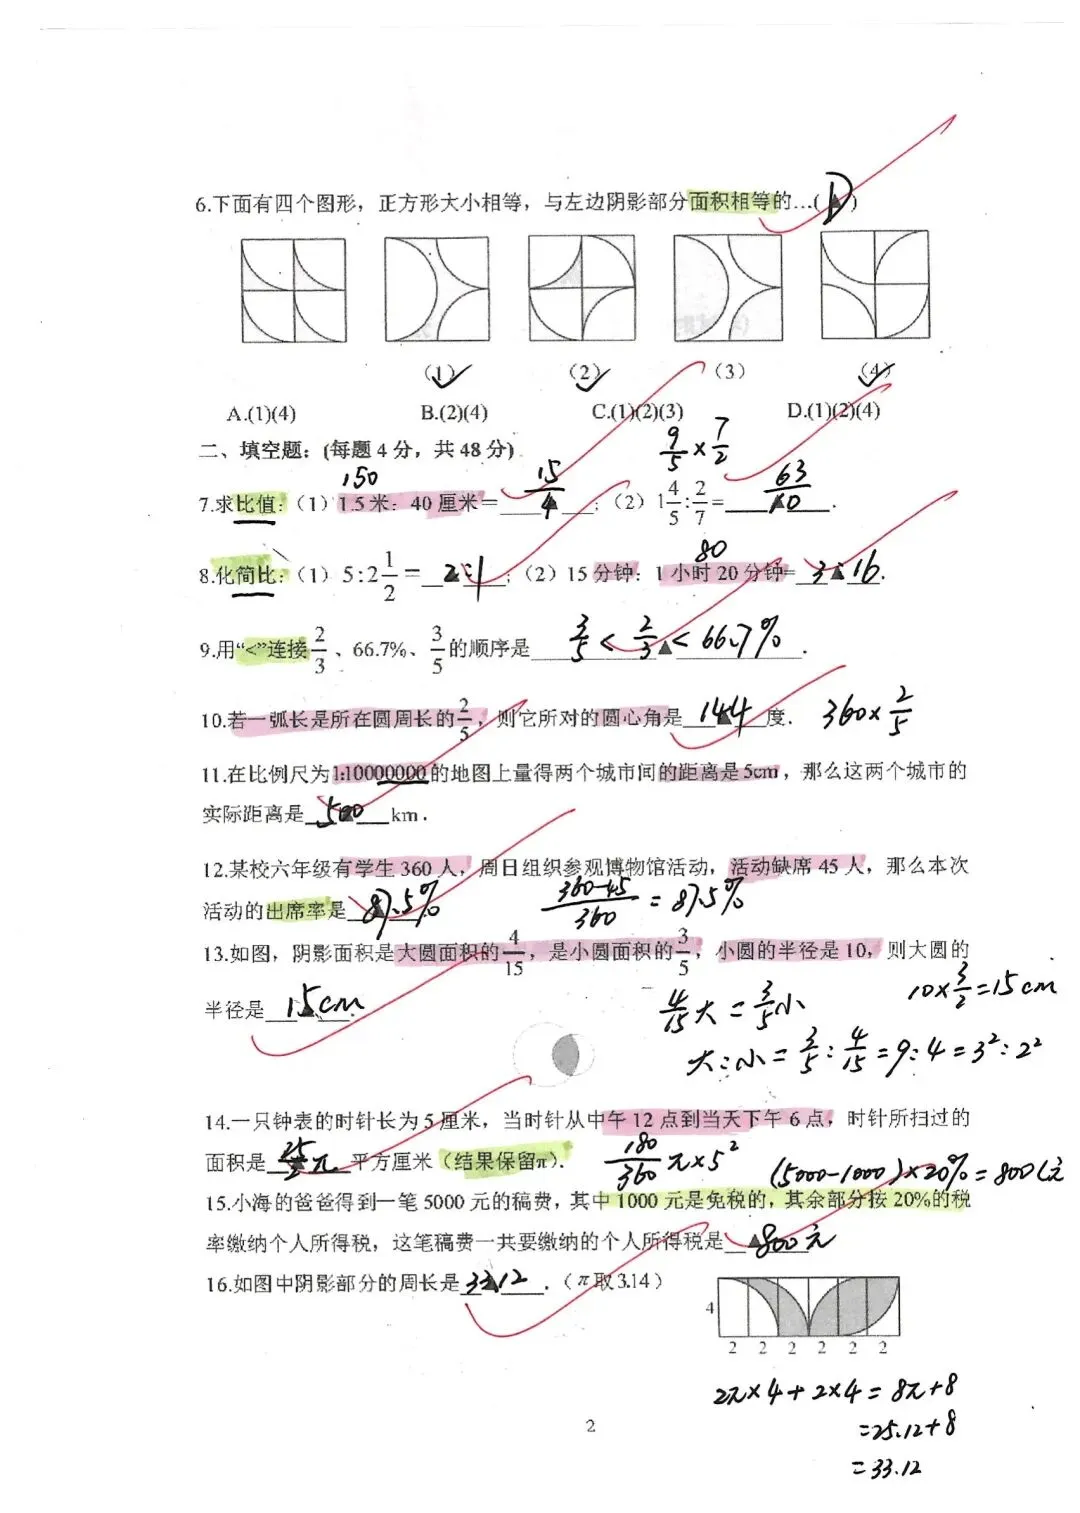 6.下面有四个图形，正方形大小相等，与左边阴影部分面积相等的…( D )
(1)✓ (2)✓ (3) (4)✓
A.(1)(4) B.(2)(4) C.(1)(2)(3) D.(1)(2)(4)
二、填空题：(每题 4 分，共 48 分)
9/5 × 7/2
150
7.求比值：(1) 1.5 米：40 厘米= 15/4 ；(2) 1 4/5 : 2/7 = 63/10 .
80
8.化简比：(1) 5:2 1/2 = 2:1 ；(2) 15 分钟：1 小时 20 分钟= 3:16 .
9.用“<”连接 2/3 、66.7%、3/5 的顺序是 3/5 < 2/3 < 66.7% .
10.若一弧长是所在圆周长的 2/5，则它所对的圆心角是 144 度． 360× 2/5
11.在比例尺为1:10000000的地图上量得两个城市间的距离是5cm，那么这两个城市的
实际距离是 500 km．
12.某校六年级有学生 360 人，周日组织参观博物馆活动，活动缺席 45 人，那么本次
活动的出席率是 87.5% (360-45)/360 = 87.5%
13.如图，阴影面积是大圆面积的 4/15，是小圆面积的 3/5，小圆的半径是 10，则大圆的
半径是 15cm .
4/15 大 = 3/5 小 10× 3/2 =15cm
大:小= 3/5 : 4/15 =9:4=3²:2²
14.一只钟表的时针长为 5 厘米，当时针从中午 12 点到当天下午 6 点，时针所扫过的
面积是 25/2 π 平方厘米（结果保留π）． 180/360 π×5² (5000-1000)×20%=800元
15.小海的爸爸得到一笔 5000 元的稿费，其中 1000 元是免税的，其余部分按 20%的税
率缴纳个人所得税，这笔稿费一共要缴纳的个人所得税是 800元
16.如图中阴影部分的周长是 33.12 ．（π取3.14）
4
2 2 2 2 2 2
2π×4+2×4=8π+8
=25.12+8
=33.12
2